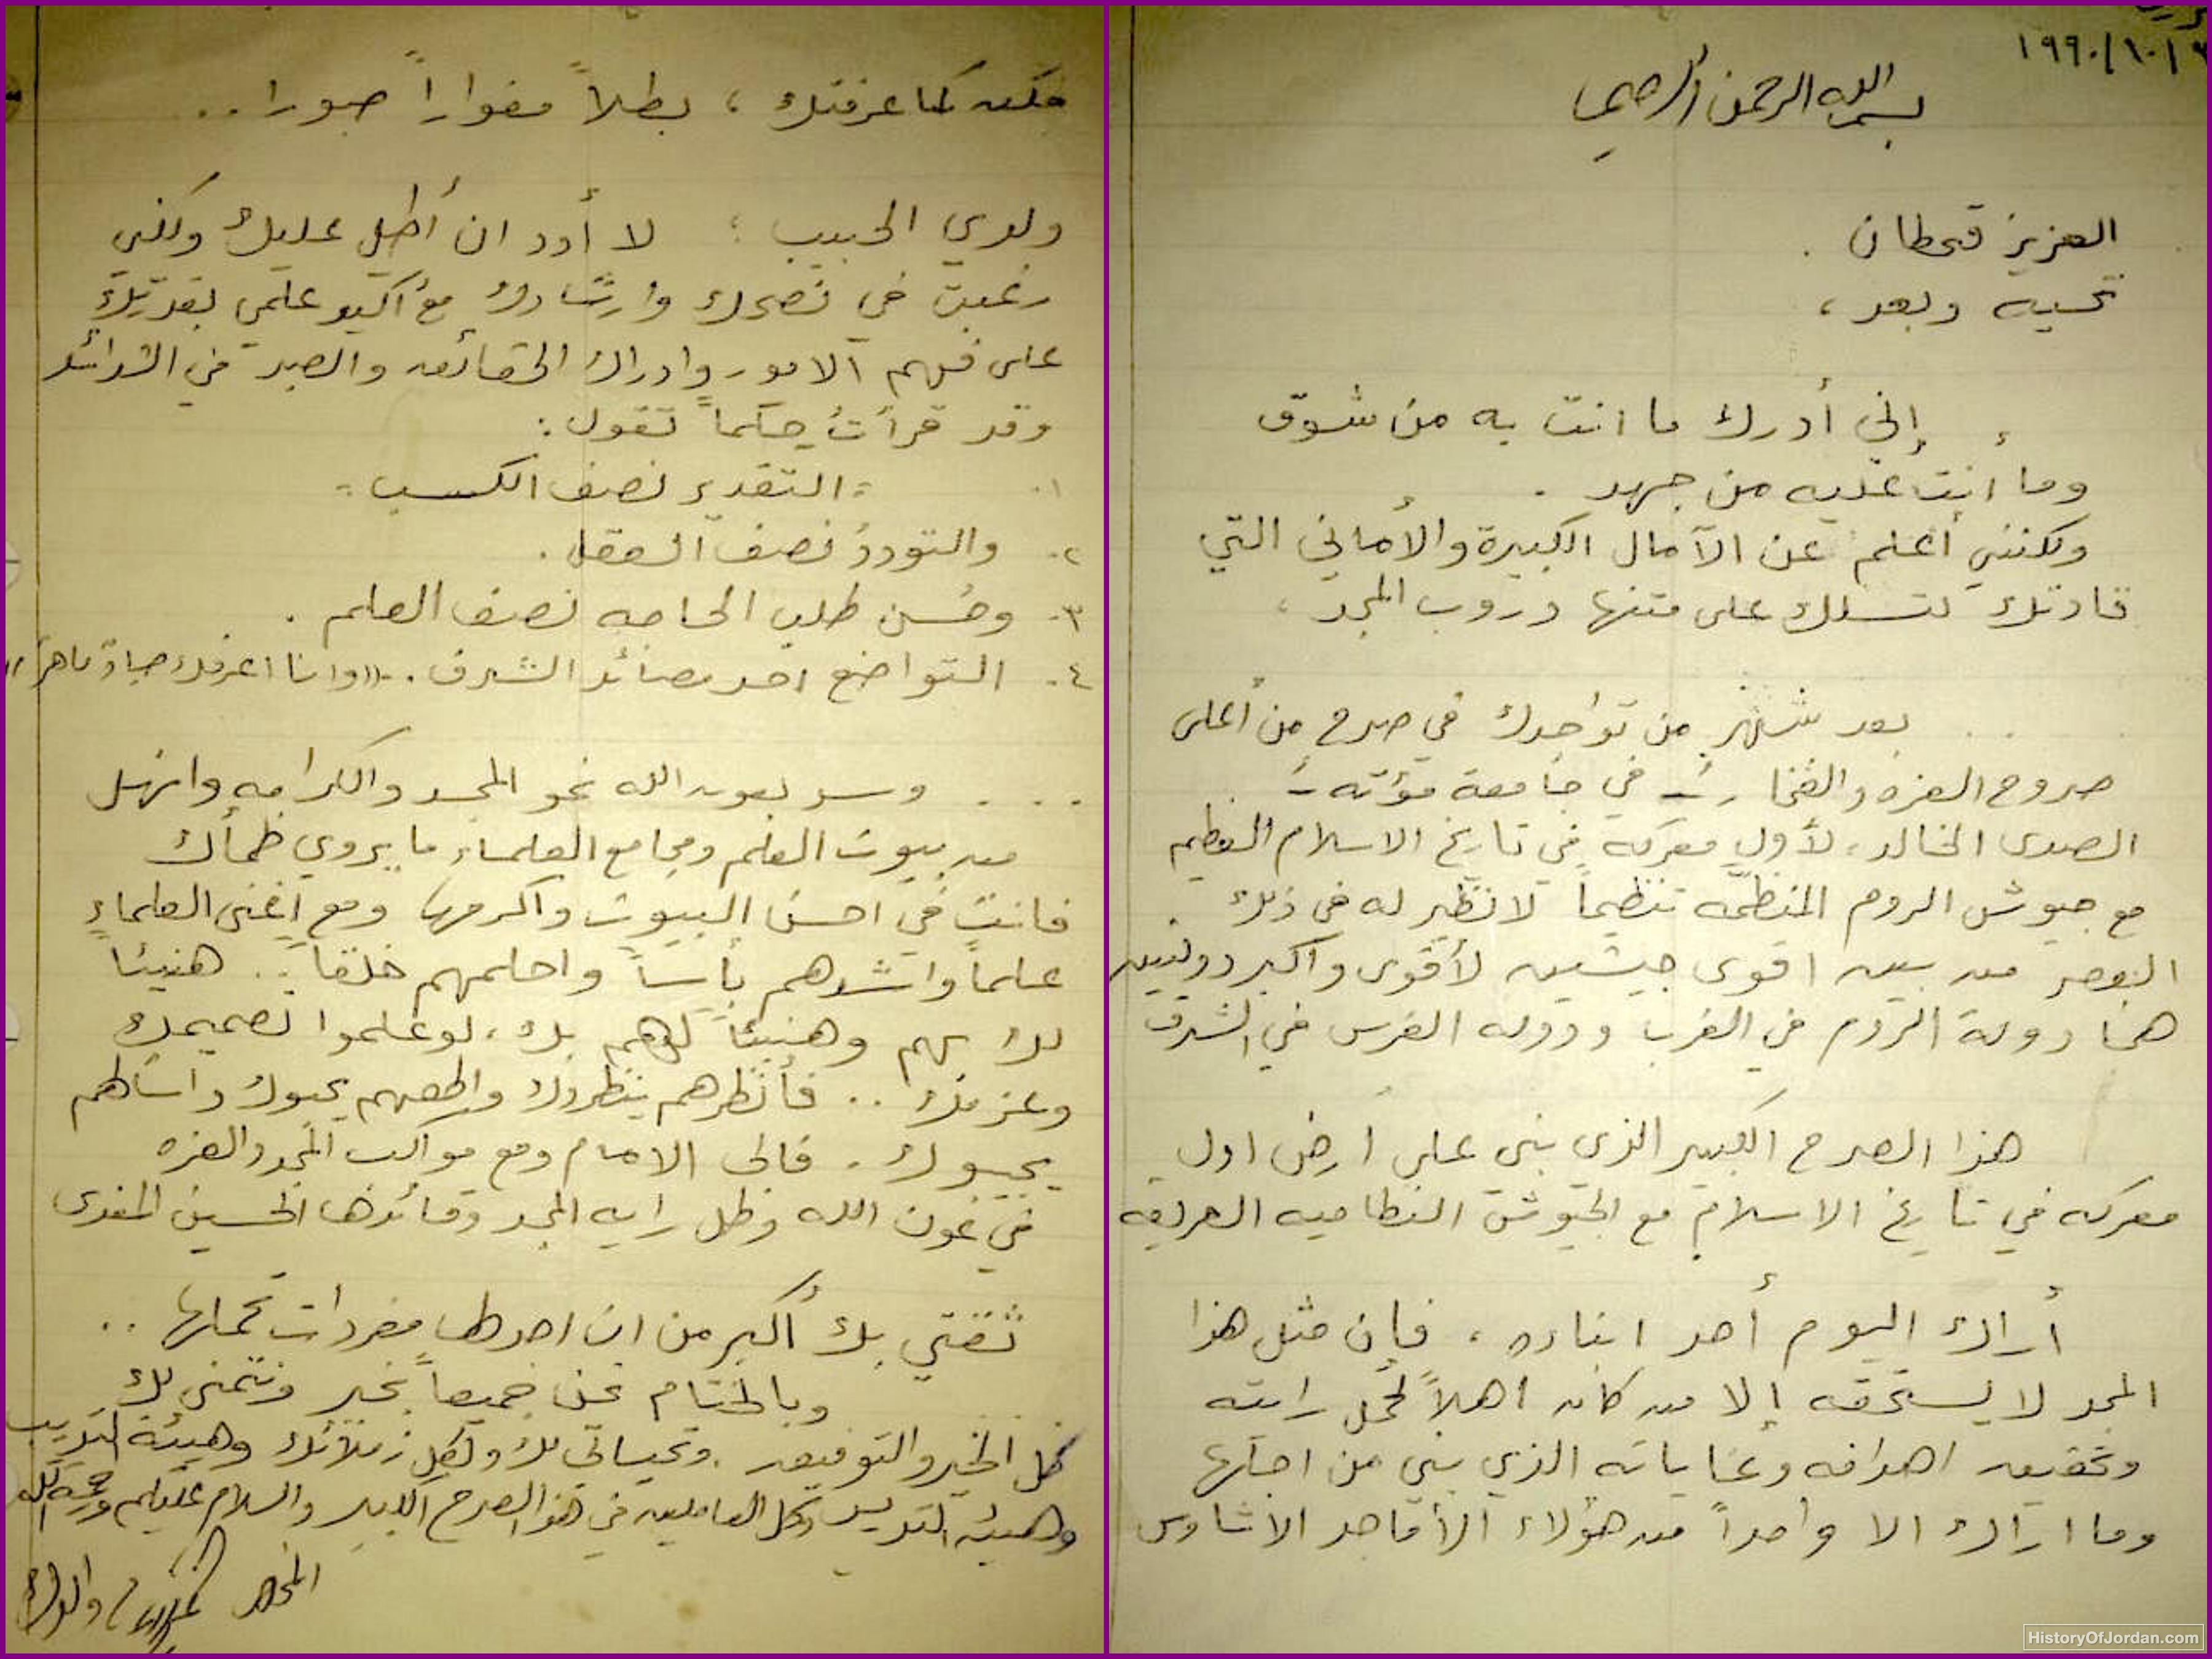 ١٩٩٠/١٠/
بسم الله الرحمن الرحيم
العزيز قحطان .
تحيه وبعد ،
إني أدرك ما انت به من شوق
وما أنت عليه من جهد .
ولكنني أعلم عن الآمال الكبيرة والأماني التي
قادتك لتسلك على متنها دروب المجد .
. . بعد شهرٍ من تواجدك في صرح من أعلى
صروح العزه والفخار - في جامعة مؤته -
الصدى الخالد ، لأول معركه في تاريخ الاسلام العظيم
مع جيوش الروم المنظمه تنظيماً لا نظير له في ذلك
العصر من بين اقوى جيشين لأقوى واكبر دولتين
هما دولة الروم في الغرب ودوله الفرس في الشرق
هذا الصرح الكبير الذي بني على أرض اول
معركه في تاريخ الاسلام مع الجيوش النظاميه العريقه
أراك اليوم أحد ابناءه ، فإن مثل هذا
المجد لا يستحقه إلا من كان اهلاً لحمل رايته
وتحقيق اهدافه وغاياته الذي بني من اجلها
وما اراك الا واحداً من هؤلاء الأماجد الاشاوس
فكن كما عرفتك ، بطلاً مغواراً صبورا ..
ولدي الحبيب ؛ لا أود ان أطيل عليك ولكني
رغبت في نصحك وارشادك مع أكيد علمي بقدرتك
على فهم الامور وادراك الحقائق والصبر في الشدائد
وقد قرأتُ حكماً تقول :
١. "التقدير نصف الكسب"
٢. والتودد نصف العقل .
٣. وحُسن طلب الحاجه نصف العلم .
٤. التواضع احد مصائد الشرف . "وانا اعرفك صياد ماهراً"
. . . وسر بعون الله نحو المجد والكرامه وانهل
من بيوت العلم ومجامع العلماء ما يروي ظمأك
فانت في احسن البيوت واكرمها ومع اغنى العلماء
علماً واشدهم بأساً واحلمهم خلقاً .. هنيئاً
لك بهم وهنيئاً لهم بك ، لو علموا تصميمك
وعزمك .. فأنظرهم ينظروك واطعهم يحبوك واسألهم
يجيبوك . فالى الامام ومع مواكب المجد والعزه
في عون الله وظل رايه المجد وقائدها الحسين المفدى
ثقتي بك أكبر من ان احدها مفردات تحملها ..
وبالختام نحن جميعاً بخير ونتمنى لك
كل الخير والتوفيق . وتحياتي لك ولكل زملائك وهيئة التدريب
وهيئه التدريس وكل العاملين في هذا الصرح الكبير والسلام عليكم ورحمة الله
المخلص والدك
HistoryOfJordan.com